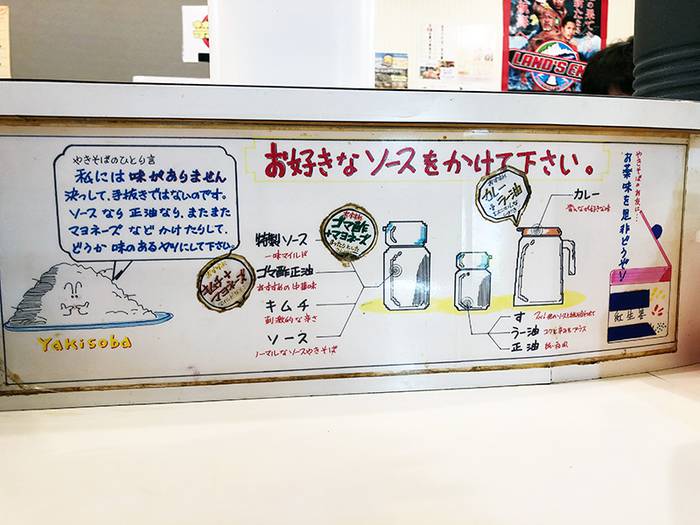 お好きなソースをかけて下さい。
やきそばのひとり言
私には味がありません
決っして、手抜きではないのです。
ソースなり正油なり、またまた
マヨネーズなどかけたりして、
どうか味のあるヤツにして下さい。
Yakisoba
キムチ+
マヨネーズ
特製ソース
一味マイルド
ゴマ酢正油
おすすめの中華味
キムチ
刺激的な辛さ
ソース
ノーマルなソースやきそば
おすすめ
ゴマ酢
+マヨネーズ
カレー
+ラー油
カレー
す
ラー油
コクと辛さをプラス
正油
やきそばのお供に…
お薬味を是非どうぞ!
紅生姜
LAND'S EN